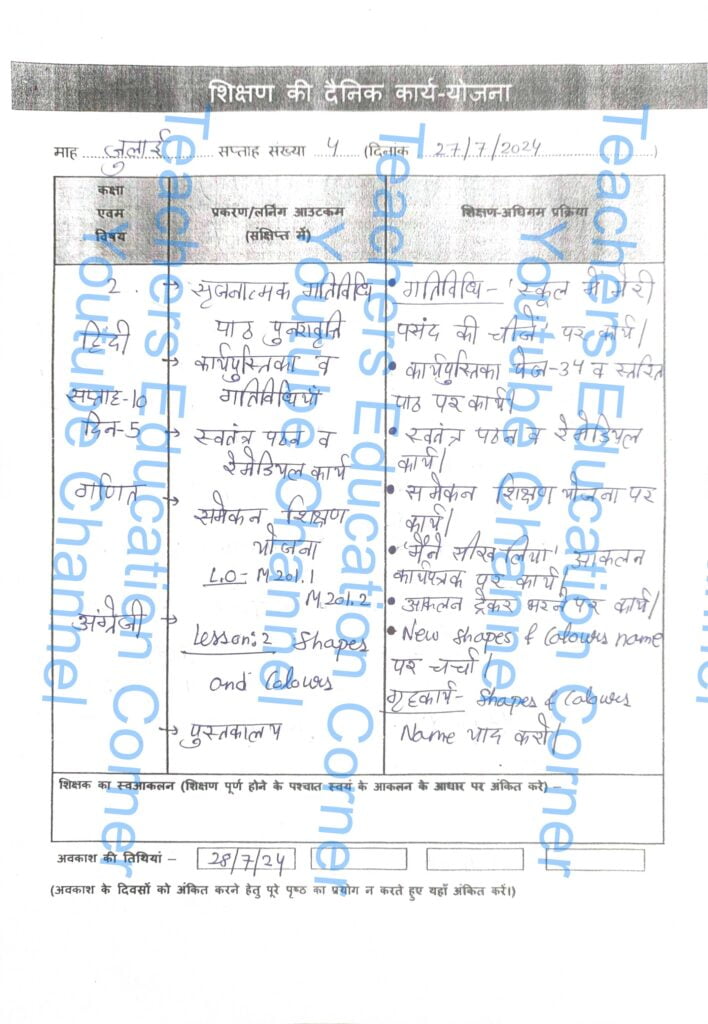 शिक्षण की दैनिक कार्य-योजना
माह जुलाई सप्ताह संख्या 4 (दिनाक 27/7/2024)
कक्षा
एवम
विषय
प्रकरण/लर्निग आउटकम
(संक्षिप्त में)
शिक्षण-अधिगम प्रक्रिया
2.
हिंदी
सप्ताह-10
दिन-5
→ सृजनात्मक गतिविधि
पाठ पुनरावृति
→ कार्यपुस्तिका व
गतिविधियाँ
→ स्वतंत्र पठन व
रेमेडियल कार्य
• गतिविधि- 'स्कूल में मेरी
पसंद की चीजें' पर कार्य।
• कार्यपुस्तिका पेज-34 व स्तरित
पाठ पर कार्य।
• स्वतंत्र पठन व रेमेडियल
कार्य।
गणित
→ समेकन शिक्षण
योजना
L.O- M201.1
M201.2
• समेकन शिक्षण योजना पर
कार्य।
• 'मैंने सीख लिया' आकलन
कार्यपत्रक पर कार्य।
• आकलन ट्रैकर भरने पर कार्य।
अंग्रेजी
→ Lesson:2 Shapes
and Colours
→ पुस्तकालय
• New Shapes & Colours name
पर चर्चा।
गृहकार्य- Shapes & Colours
Name याद करो।
शिक्षक का स्वआकलन (शिक्षण पूर्ण होने के पश्चात स्वयं के आकलन के आधार पर अंकित करे) –
अवकाश की तिथियां – 28/7/24
(अवकाश के दिवसों को अंकित करने हेतु पूरे पृष्ठ का प्रयोग न करते हुए यहाँ अंकित करें।)
Teachers Education Corner
Youtube Channel
Teachers Education Corner
Youtube Channel
Teachers Education Corner
Youtube Channel